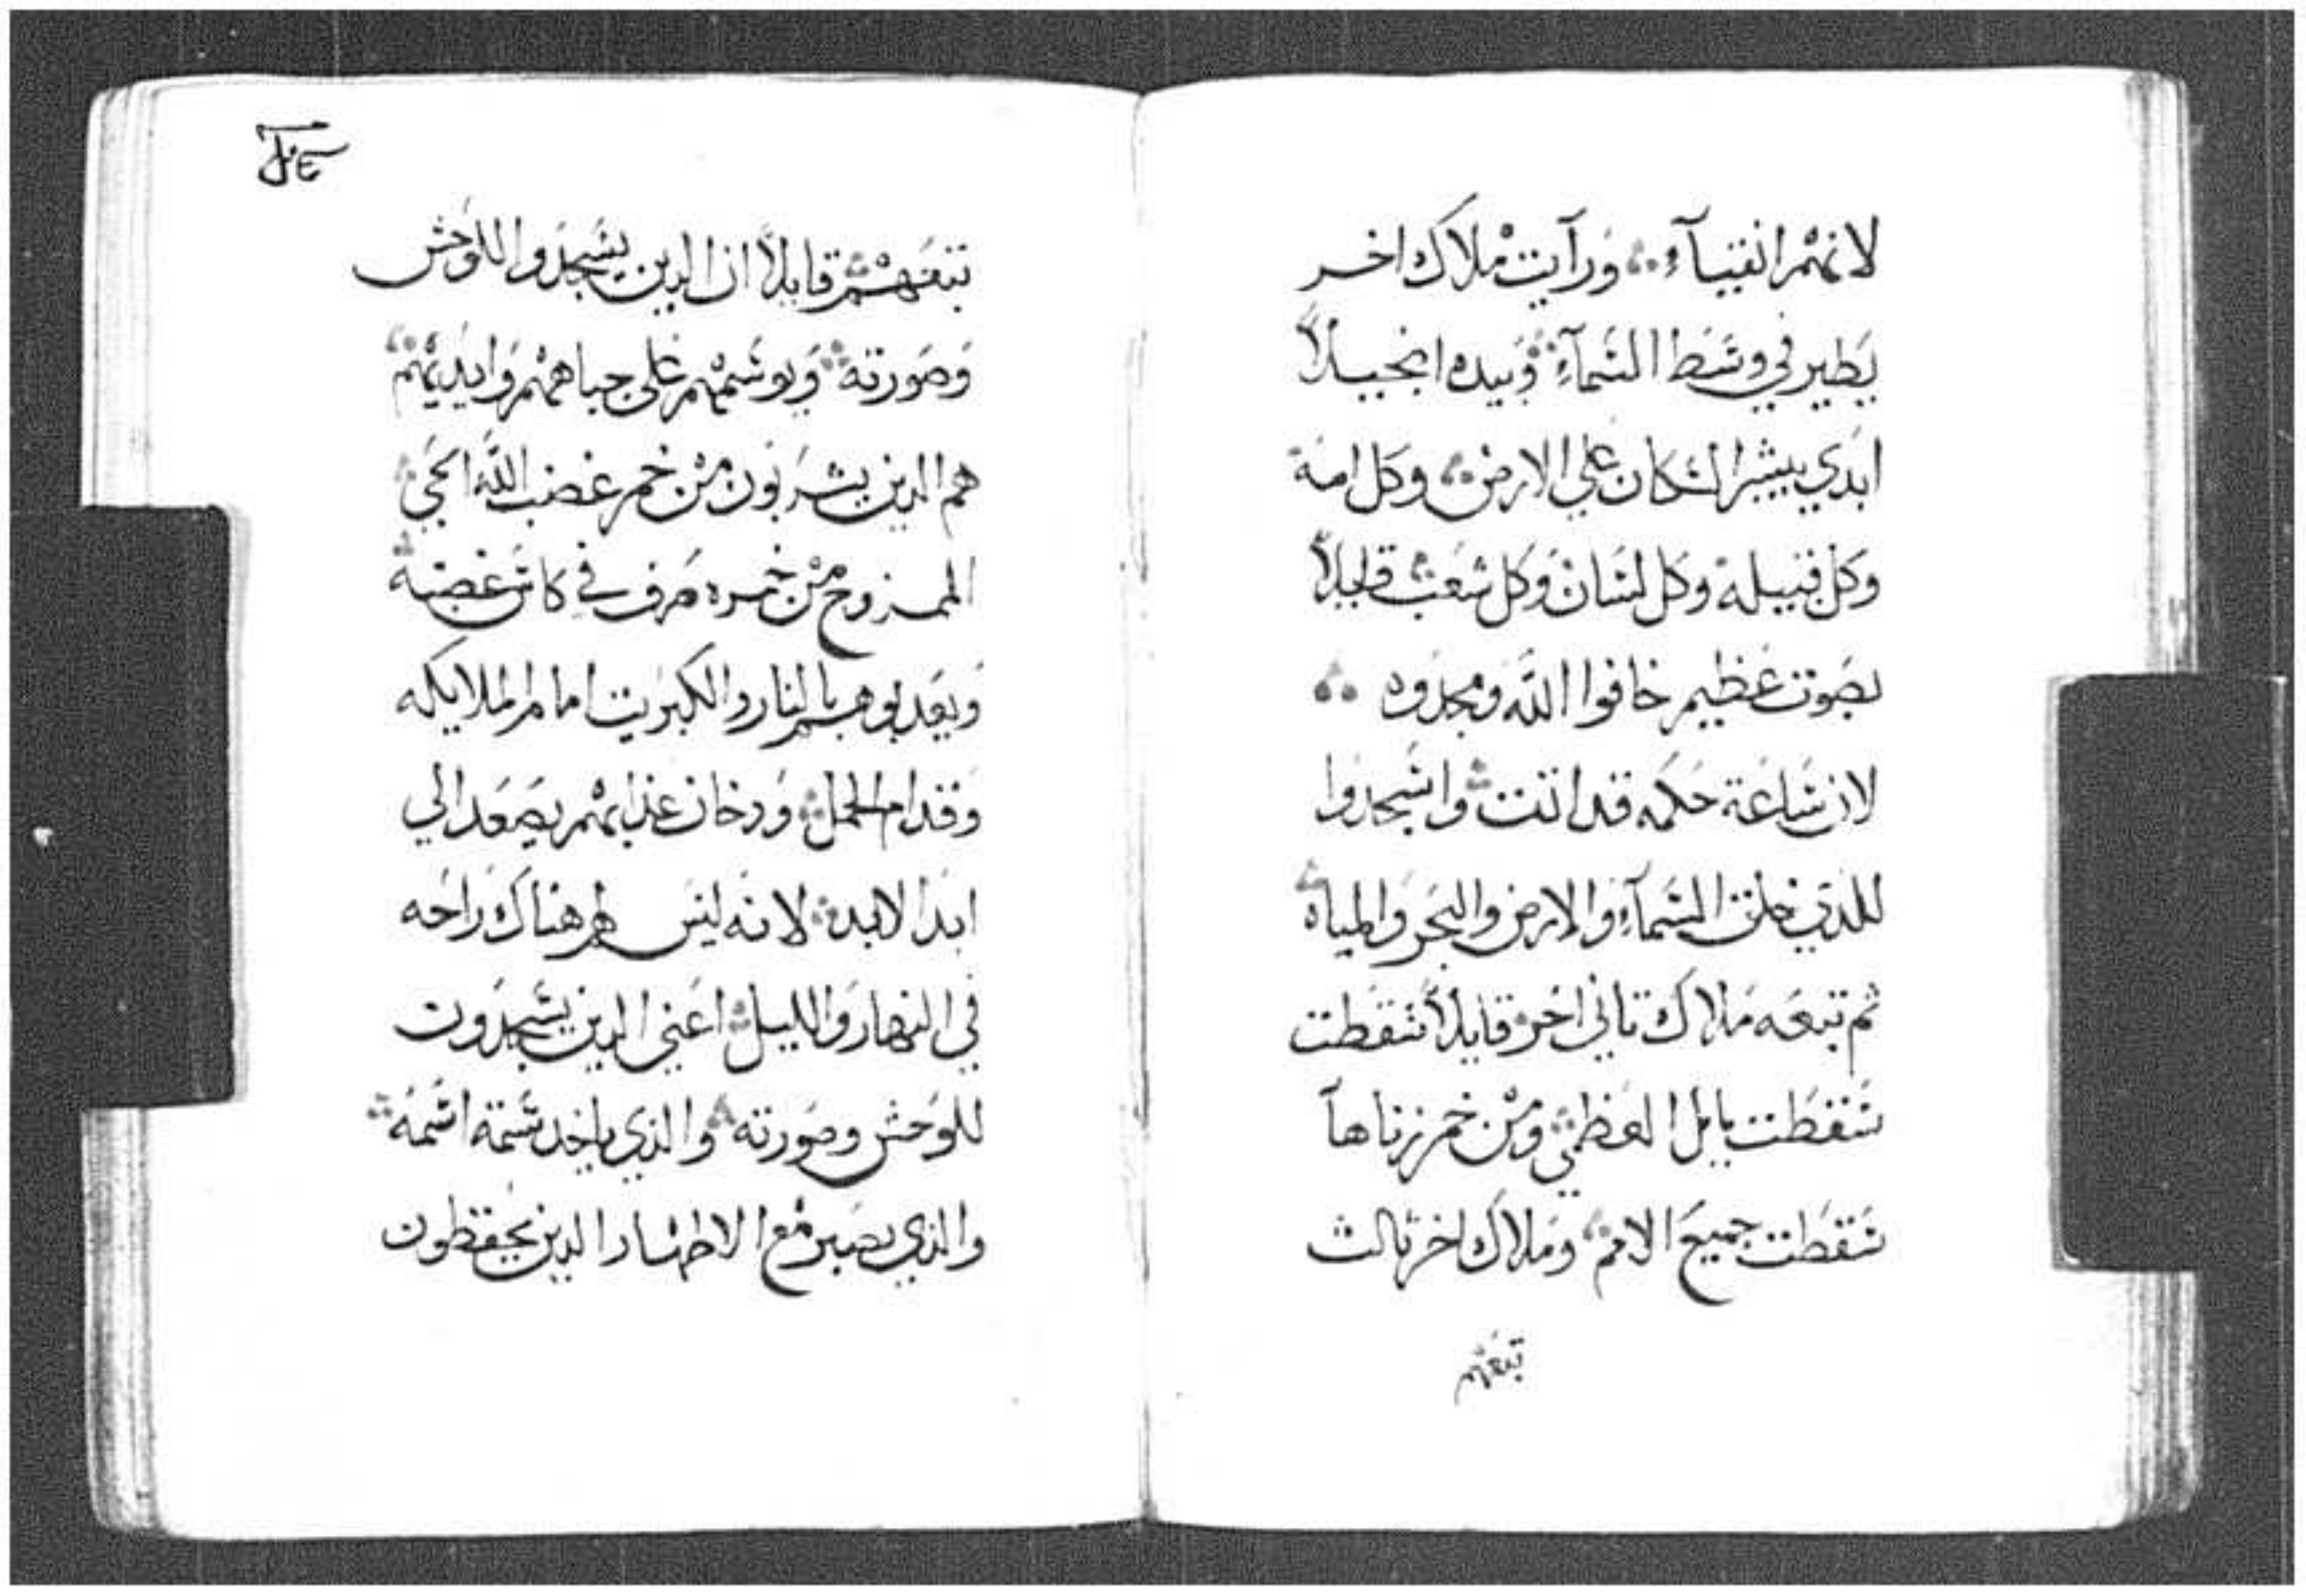 لانهم انقيآء ورآيت ملاك اخر
يطير في وسط السمآء وبيده انجيلاً
ابدي يبشر السكان علي الارض وكل امة
وكل قبيلة وكل لسان وكل شعب قايلاً
بصوت عظيم خافوا الله ومجدوه
لان ساعة حكمه قد اتت واسجدوا
للذي خلق السمآء والارض والبحر والمياه
ثم تبعه ملاك تاني اخر قايلاً سقطت
سقطت بابل العظمي ومن خمر زناها
سقطت جميع الامم وملاك اخر ثالث
تبعهم
تبعهم قايلاً ان الدين يسجدوا للوحش
وصورته ويوسمهم علي جباههم وايديهم
هم الدين يشربون من خمر غضب الله الحي
الممزوج من خمره صرف في كاس غضبه
ويعدبوهم بالنار والكبريت امام الملايكه
وقدام الحمل ودخان عذابهم يصعد الي
ابد الابد لانه ليس لهم هناك راحه
في النهار والليل اعني الدين يسجدون
للوحش وصورته والذي ياخد سمة اسمه
والذي يصبر مع الاطهار الدين يحفظون